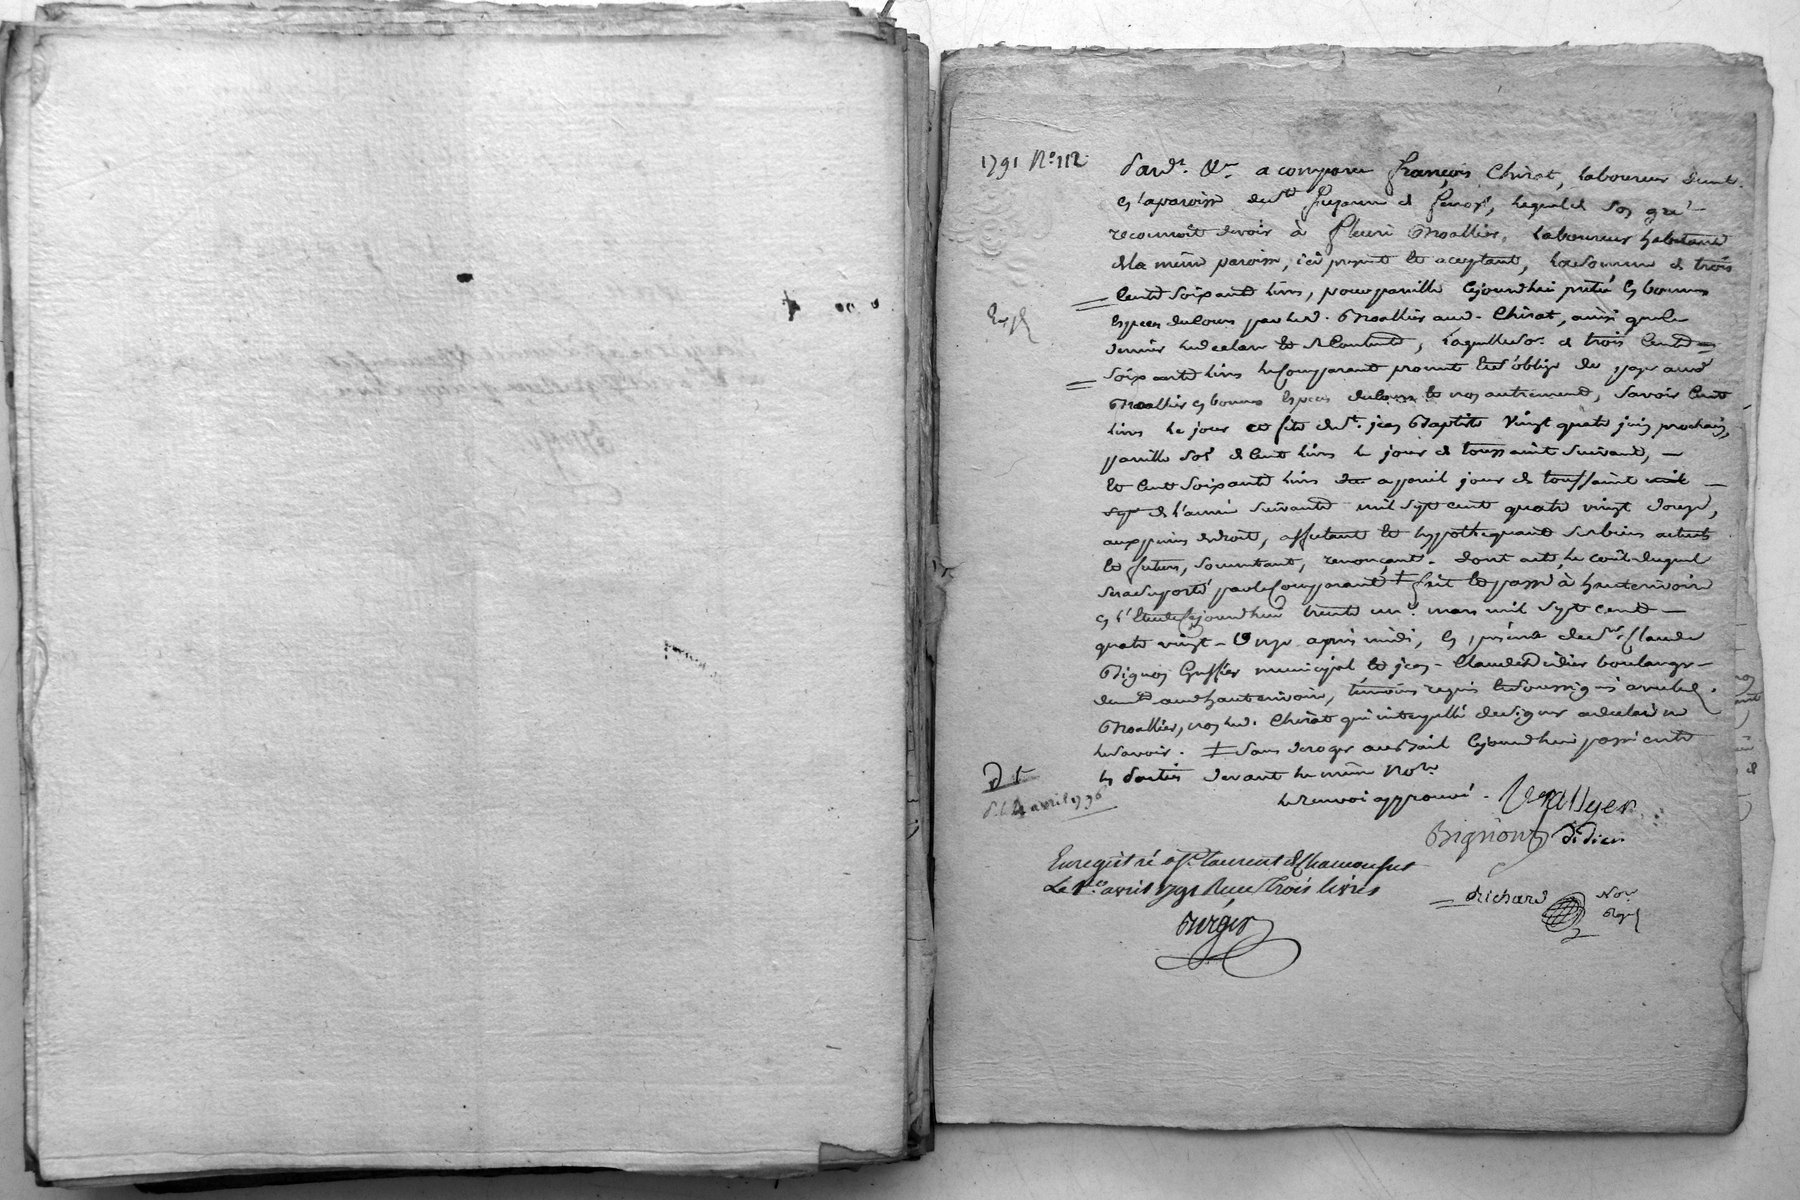 1791 N.o 112
Pard.t Nr. a comparu françois Chirat, laboureur demt.
en la paroisse de St Simphorien de Lay, lequel de son gré
reconnoit devoir à fleuri Noallier, laboureur habitant
de la même paroisse, ici present et aceptant, la somme de trois
Expé
cent soixante livres, pour pareille cejourdhui prêté en bonnes
especes du cours par led. Noallier aud. Chirat, ainsi que le
dernier le declare et se Contente, laquelle so.e de trois Cent
soixante livres le Comparant promet et s'oblige de payer aud
Noallier en bonnes especes du cours et non autrement, savoir Cent
livres le jour et fête de St. jean Baptiste vingt quatre juin prochain,
pareille so.e de Cent livres le jour de toussaint suivant,
et Cent soixante livres a pareil jour de toussaint
de l'année suivante mil sept cent quatre vingt douze,
aux peines de droit, affectant et hypothequant ses biens actuels
et futurs, soumettant, renonçant. dont acte, le coût duquel
sera suporté par le Comparant ‡ fait et passé à hauterivoire
en l'Etude cejourdhui trente un. mars mil sept cent
quatre vingt-onze après midi, en présence de sr. Claude
Bignon Greffier municipal et jean-Claude Didier boulanger
demt. aud hauterivoire, témoins requis et soussignés avec led.
Noallier, non led. Chirat qui interpellé de signer a declaré ne
le savoir. ‡ sans deroger au bail cejourdhui passé entre
les parties devant le même Nore
D t
le 4 avril 1796
le renvoi approuvé.
Noallyer
Bignon Didier
Enregistré a St Laurent de Chamousset
Le 1.er avril 1791 Reçu trois livres
Richard Nore
Royal
Berger